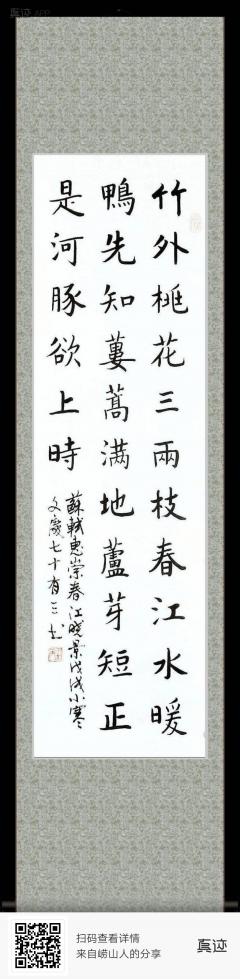 真迹 APP
竹外桃花三兩枝春江水暖
鴨先知蔞蒿满地蘆芽短正
是河豚欲上時
蘇軾惠崇春江晓景戊戌小寒
文家七十有三书
扫码查看详情
来自崂山人的分享
真迹